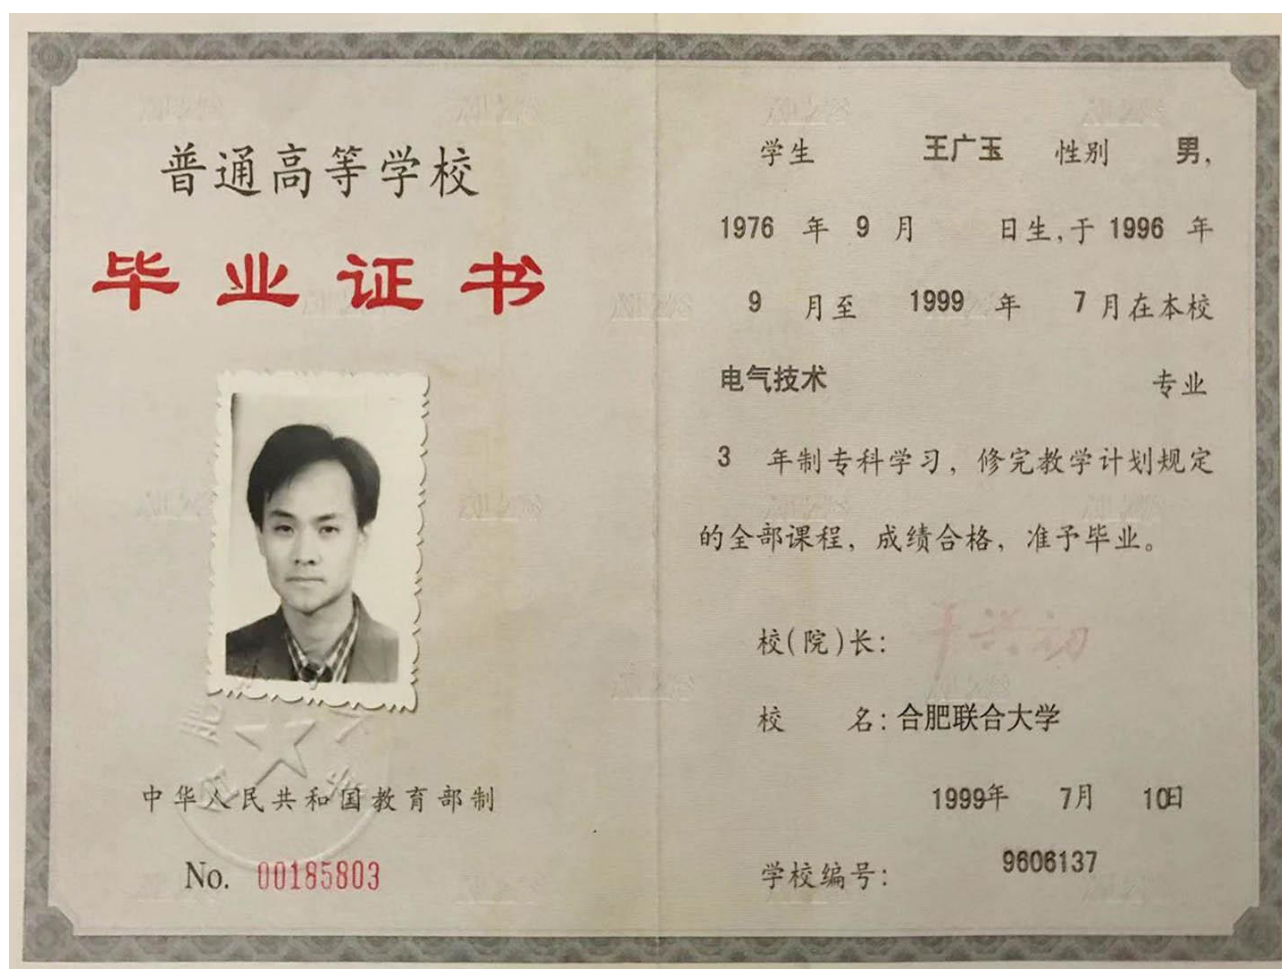 普通高等学校
毕业证书
中华人民共和国教育部制
No. 00185803
学生 王广玉 性别 男,
1976 年 9 月 日生,于 1996 年
9 月至 1999 年 7 月在本校
电气技术 专业
3 年制专科学习，修完教学计划规定
的全部课程，成绩合格，准予毕业。
校(院)长:
校 名: 合肥联合大学
1999年 7月 10日
学校编号: 9606137